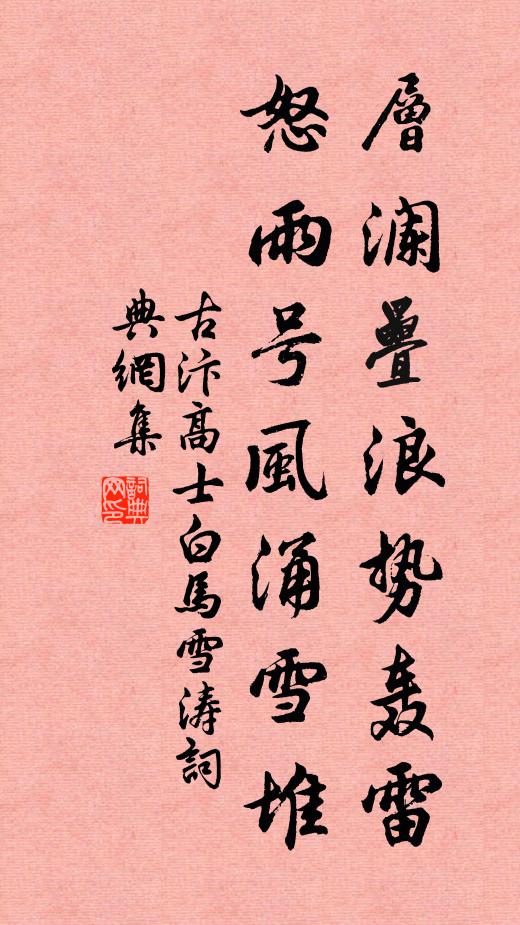 層瀾疊浪勢轰雷
怒雨号風涌雪堆
古汴高士白馬雪涛詞
典網集
詞典
网印